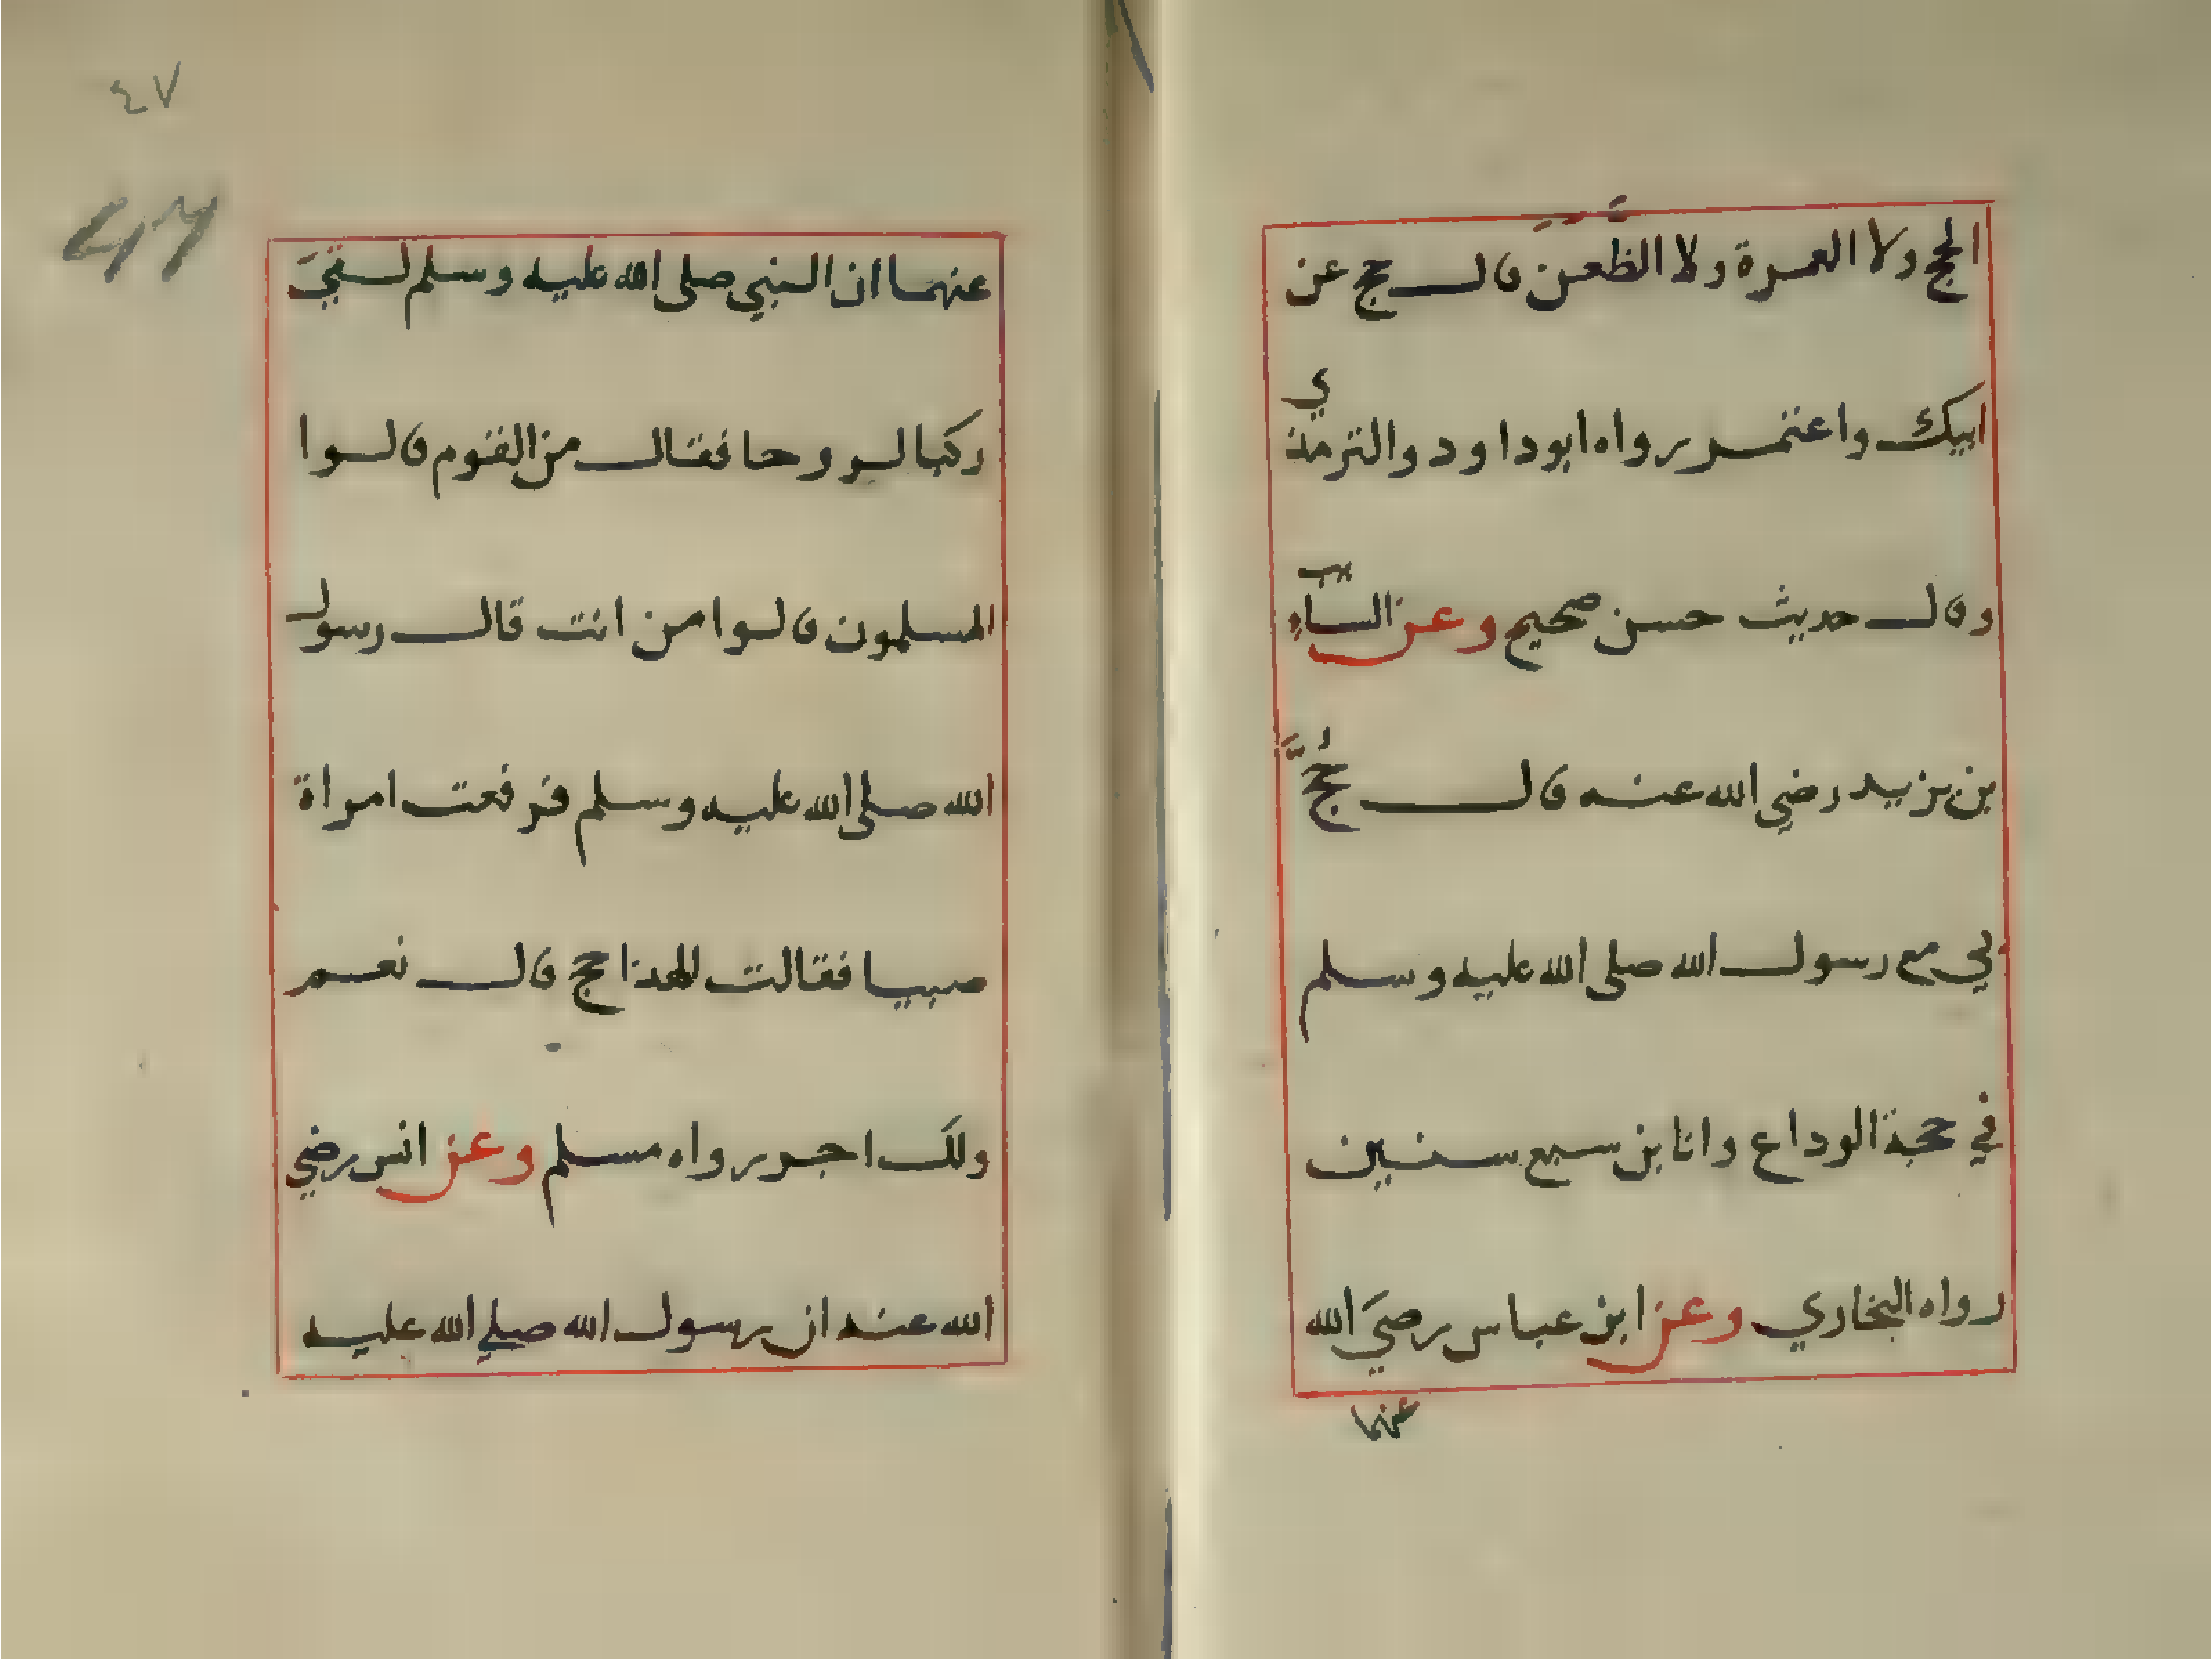 الحج ولا العمرة ولا الظَّعَن قال حج عن
ابيك واعتمر رواه ابوداود والترمذي
وقال حديث حسن صحيح وعن السايب
بن يزيد رضي الله عنه قال حُجَّ
بي مع رسول الله صلى الله عليه وسلم
في حجة الوداع وانا بن سبع سنين
رواه البخاري وعن ابن عباس رضيَ الله
عنهما
٤٧
47
عنهما ان النبي صلى الله عليه وسلم لقيَ
ركبا بالروحا فقال من القوم قالوا
المسلمون قالوا من انت قال رسول
الله صلى الله عليه وسلم فرفعت امراة
صبيا فقالت الهذا حج قال نعم
ولك اجر رواه مسلم وعن انس رضي
الله عنه ان رسول الله صلي الله عليه